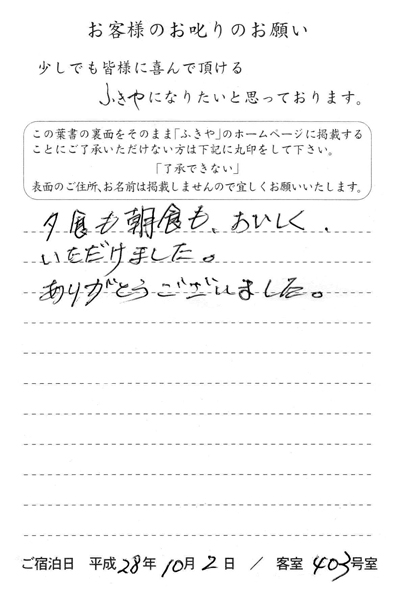 お客様のお叱りのお願い
少しでも皆様に喜んで頂ける
ふきやになりたいと思っております。
この葉書の裏面をそのまま「ふきや」のホームページに掲載する
ことにご了承いただけない方は下記に丸印をして下さい。
「了承できない」
表面のご住所、お名前は掲載しませんので宜しくお願いいたします。
夕食も朝食も、おいしく、
いただけました。
ありがとうございました。
ご宿泊日 平成28年10月2日 / 客室 403号室